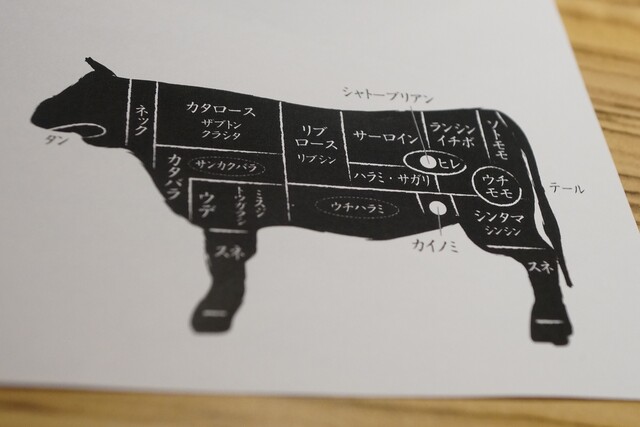 シャトーブリアン
タン
ネック
カタロース
ザブトン
クラシタ
リブ
ロース
リブシン
サーロイン
ランシン
イチボ
ソトモモ
ヒレ
カタバラ
サンカクバラ
ハラミ・サガリ
ウチ
モモ
テール
ウデ
トウガラシ
ミスジ
ウチハラミ
カイノミ
シンタマ
シンシン
スネ
スネ